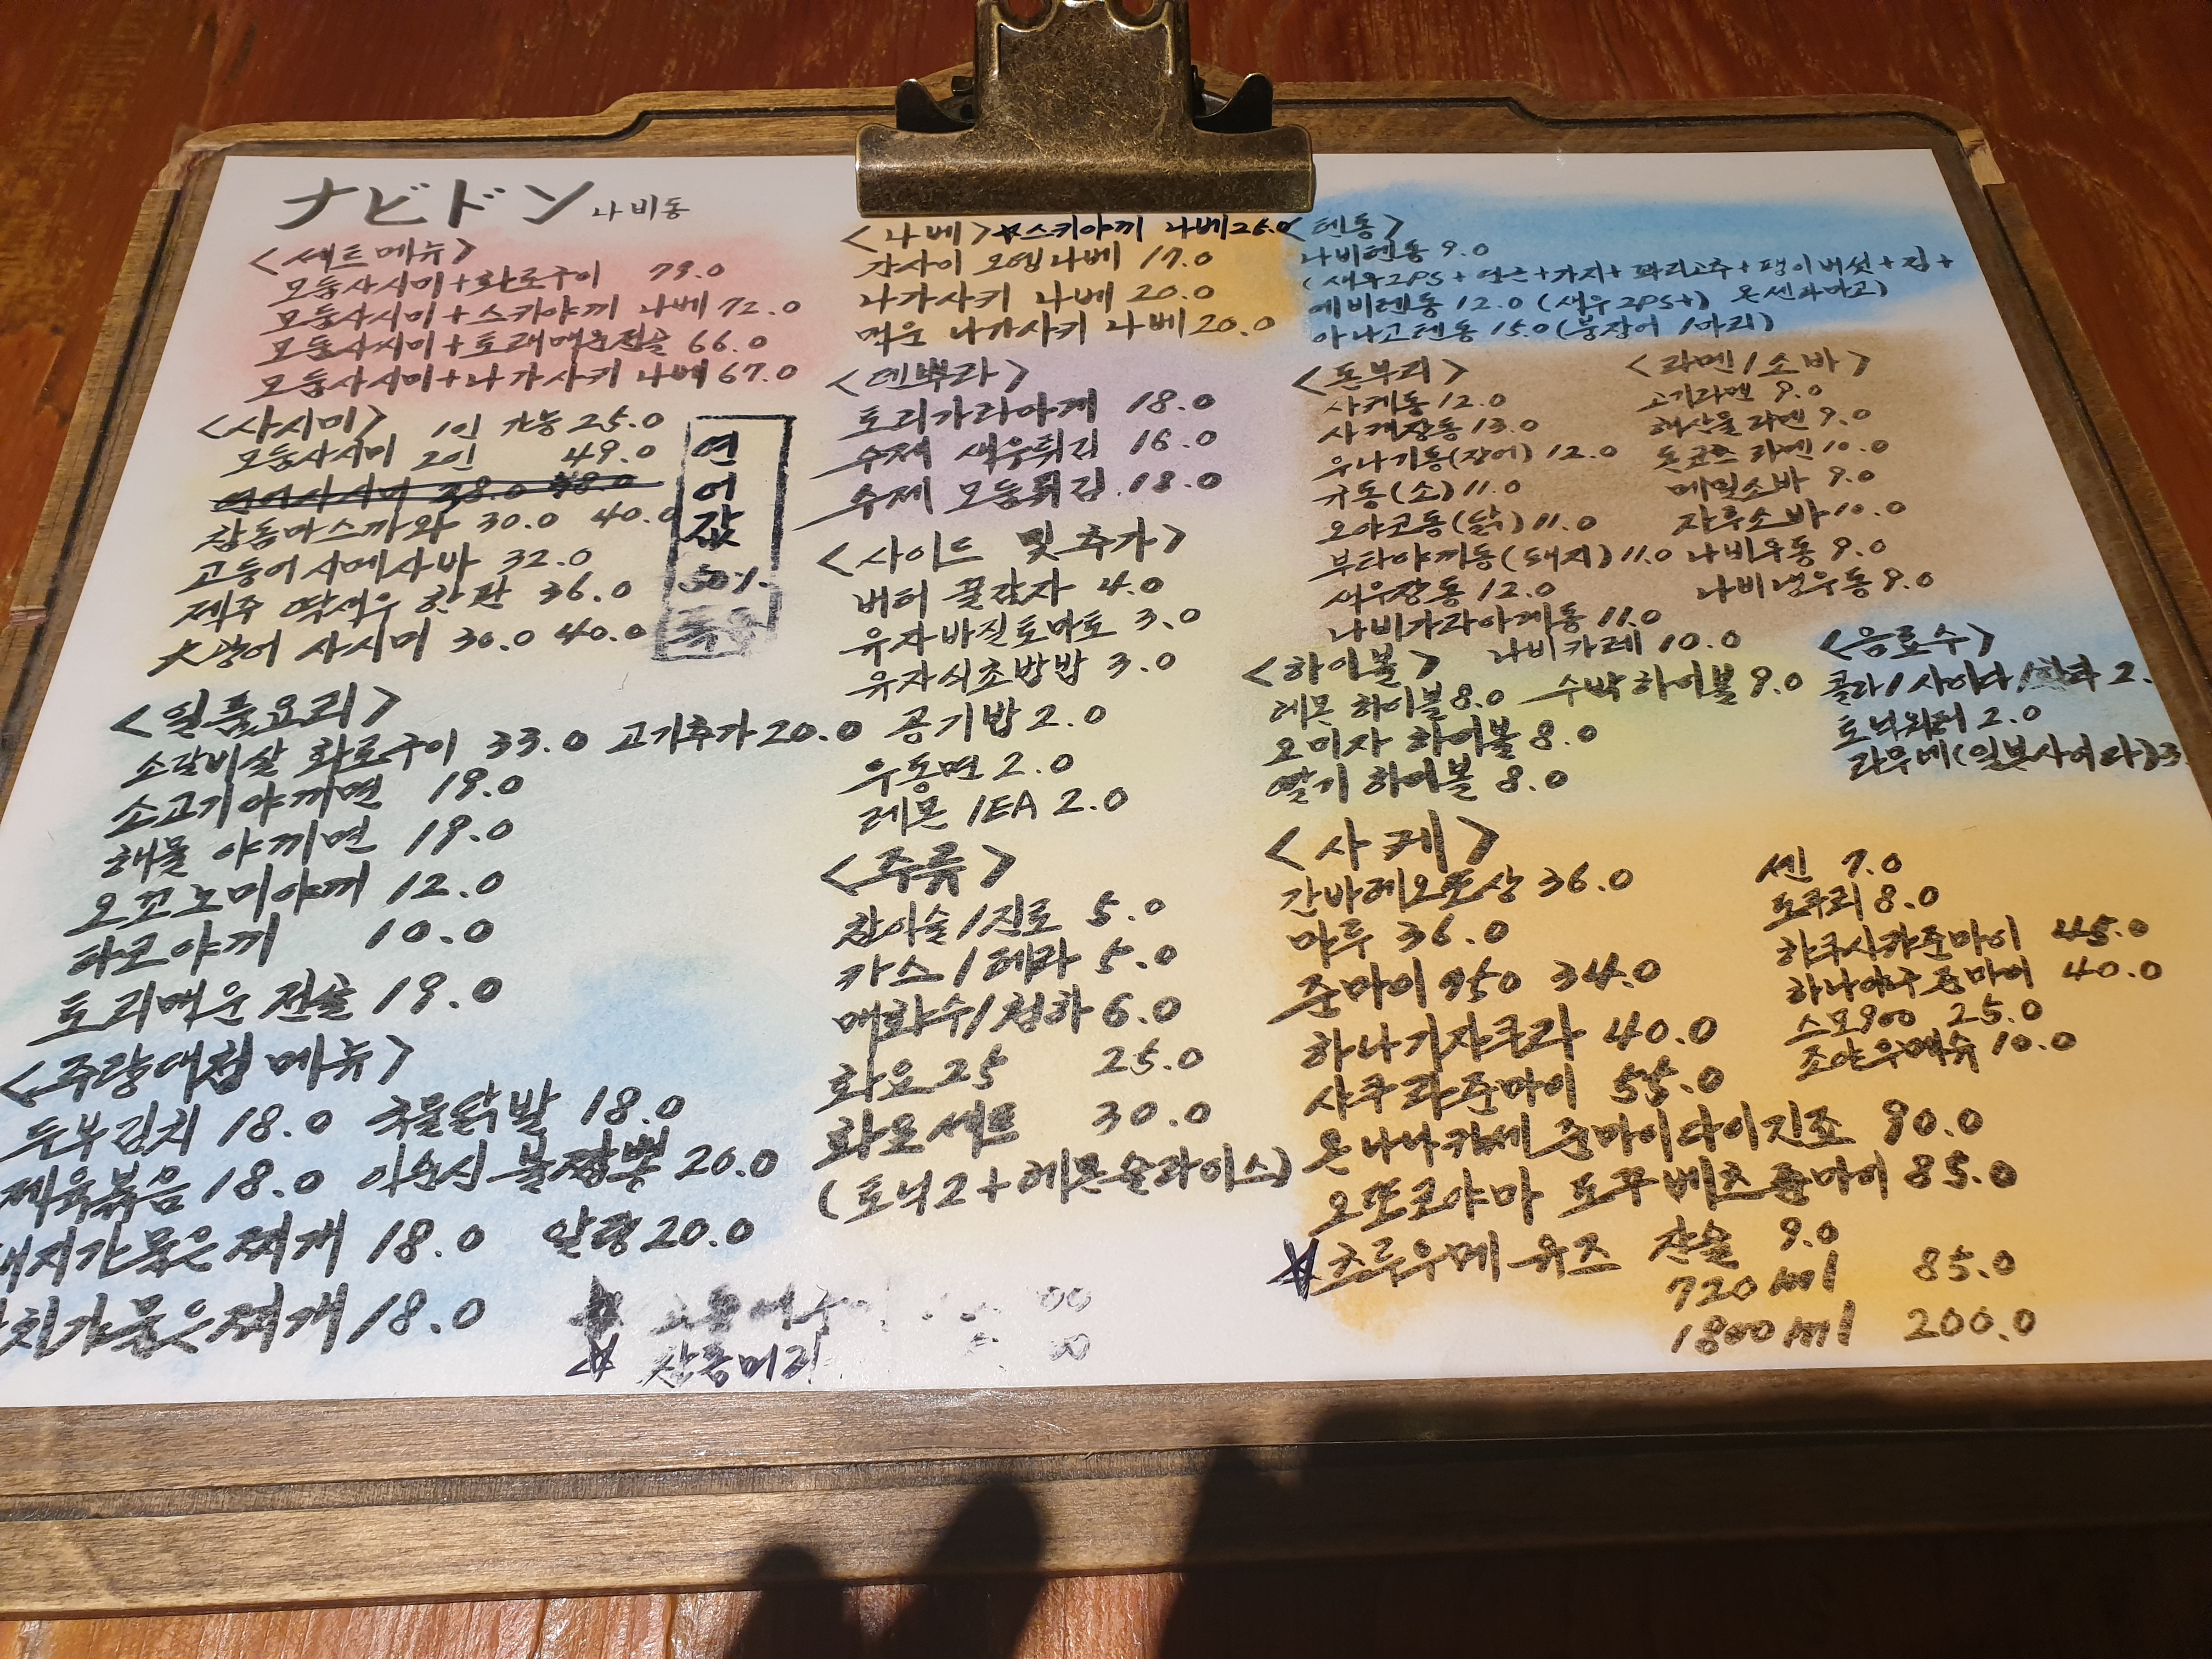 ナビドン 나비동
<세트메뉴>
모둠사시미+화로구이 79.0
모둠사시미+스키야끼 나베 72.0
모둠사시미+토리매운전골 66.0
모둠사시미+나가사키 나베 67.0
<사시미> 1인 가능 25.0
모둠사시미 2인 49.0
참돔마스까와 30.0 40.0
고등어시메사바 32.0
제주 딱새우 한판 36.0
大광어 사시미 30.0 40.0
연
어
값
50%
<일품요리>
소갈비살 화로구이 33.0 고기추가 20.0
소고기야끼면 19.0
해물 야끼면 19.0
오꼬노미야끼 12.0
타코야끼 10.0
토리매운 전골 19.0
<주량대첩 메뉴>
두부김치 18.0 국물닭발 18.0
제육볶음 18.0 이순신 불짬뽕 20.0
돼지가 묵은찌개 18.0 알탕 20.0
치가 묵은찌개 18.0
참돔머리
<나베> ☆스키야끼 나베 26.0
간사이 오뎅나베 17.0
나가사키 나베 20.0
매운 나가사키 나베 20.0
<덴뿌라>
토리가라아게 18.0
수제 새우튀김 16.0
수제 모둠튀김 18.0
<사이드 및 추가>
버터 꿀감자 4.0
유자바질토마토 3.0
유자식초밥밥 3.0
공기밥 2.0
우동면 2.0
레몬 1EA 2.0
<주류>
참이슬/진로 5.0
카스/테라 5.0
매화수/청하 6.0
화요25 25.0
화요세트 30.0
(토닉2+레몬슬라이스)
<텐동>
나비텐동 9.0
(새우2PS+연근+가지+꽈리고추+팽이버섯+김+
에비텐동 12.0 (새우2PS+) 온센타마고)
아나고텐동 15.0 (붕장어 1마리)
<돈부리>
사케동 12.0
사케장동 13.0
우나기동(장어) 12.0
규동(소) 11.0
오야코동(닭) 11.0
부타야끼동(돼지) 11.0
새우장동 12.0
나비가라아게동 11.0
나비카레 10.0
<라멘/소바>
고기라멘 9.0
해산물라멘 9.0
돈코츠 라멘 10.0
메밀소바 9.0
자루소바 10.0
나비우동 9.0
나비냉우동 9.0
<하이볼>
레몬 하이볼 8.0 수박하이볼 9.0
오미자 하이볼 8.0
딸기 하이볼 8.0
<음료수>
콜라/사이다/환타 2.
토닉워터 2.0
라무네(일본사이다) 3
<사케>
간바레오또상 36.0
마루 36.0
준마이 950 34.0
하나기자쿠라 40.0
사쿠라준마이 55.0
온나나카세 준마이다이긴죠 90.0
오또코야마 도꾸베츠 준마이 85.0
☆츠루우메 유즈 잔술 9.0
720ml 85.0
1800ml 200.0
센 7.0
도쿠리 8.0
하쿠시카준마이 45.0
하나야구 준마이 40.0
스모900 25.0
조야우메슈 10.0